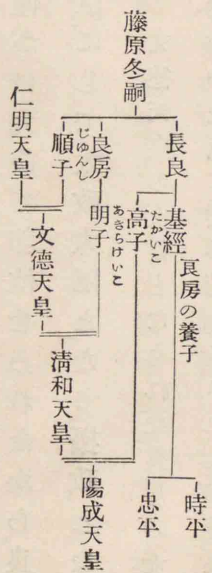 藤原冬嗣
長良
基經
良房の養子
時平
忠平
高子
たかいこ
良房
明子
あきらけいこ
順子
じゆんし
仁明天皇
文德天皇
淸和天皇
陽成天皇